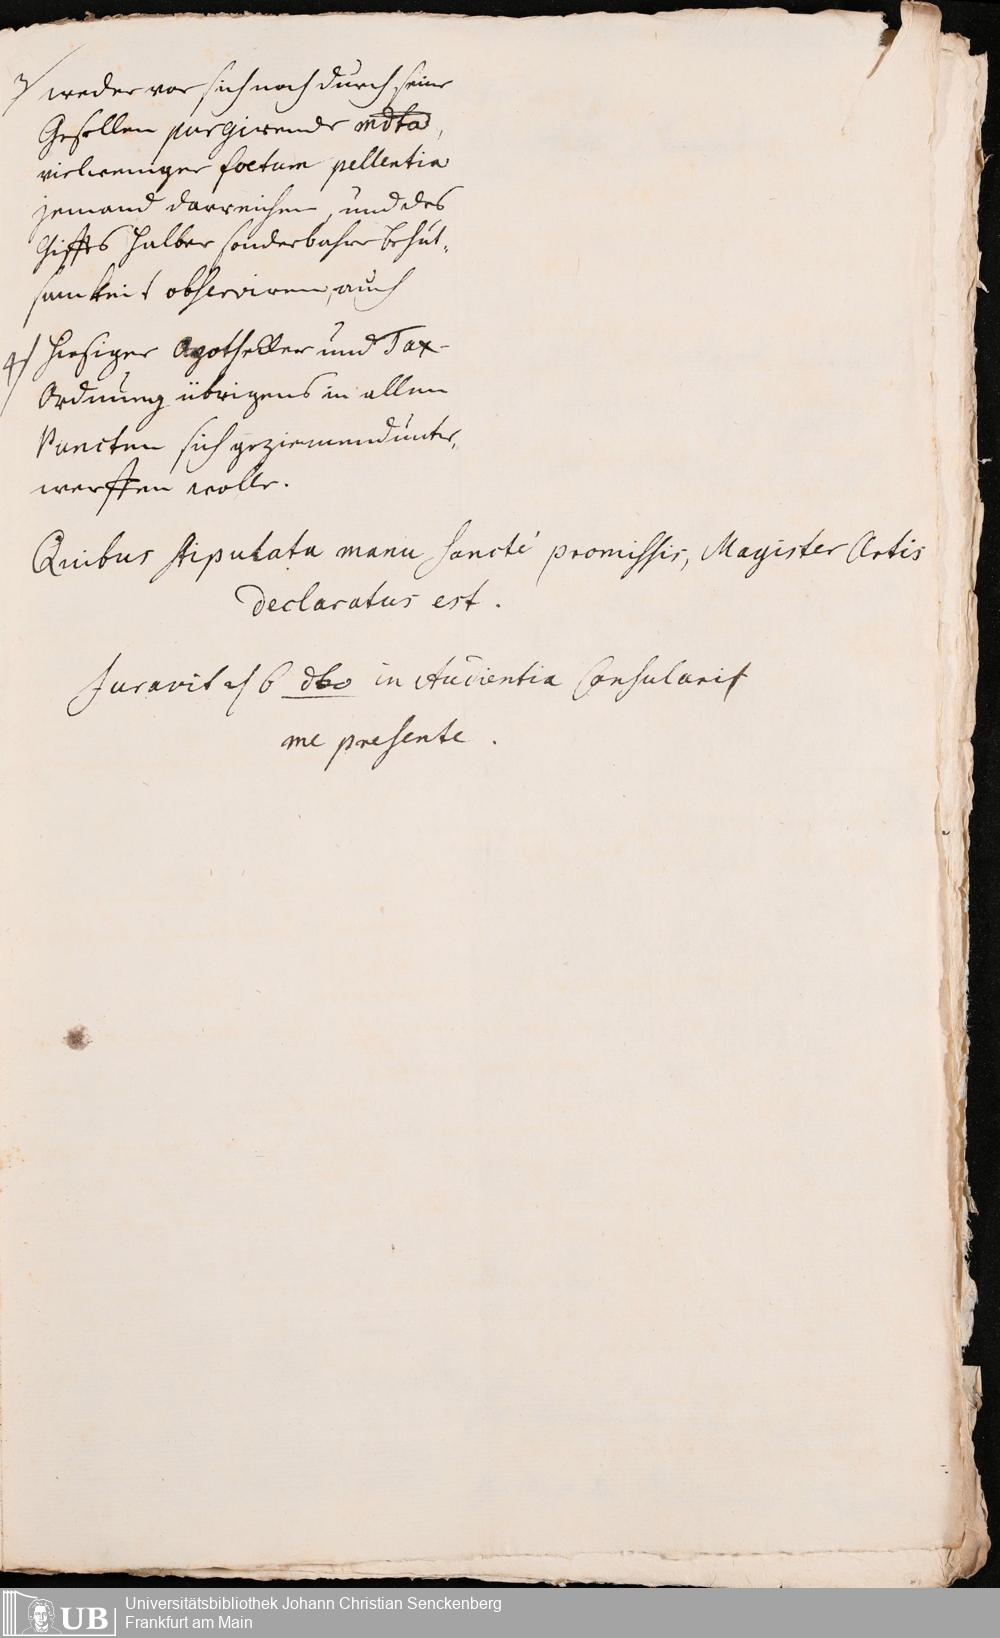 3/ weder vor sich noch durch seine
Gesellen purgirende mdta,
vielweniger foetum pellentia
jemand darreichen, und des
Giffts halber sonderbahre behut-
samkeit observiren, auch
4/ hiesiger Apothecker und Tax-
Ordnung übrigens in allen
Puncten sich geziemend unter-
werffen wolle.
Quibus stipulata manu sancté promissis, Magister Artis
declaratus est.
Juravit 6 dto in Audientia Consularis
me presente.
UB Universitätsbibliothek Johann Christian Senckenberg
Frankfurt am Main